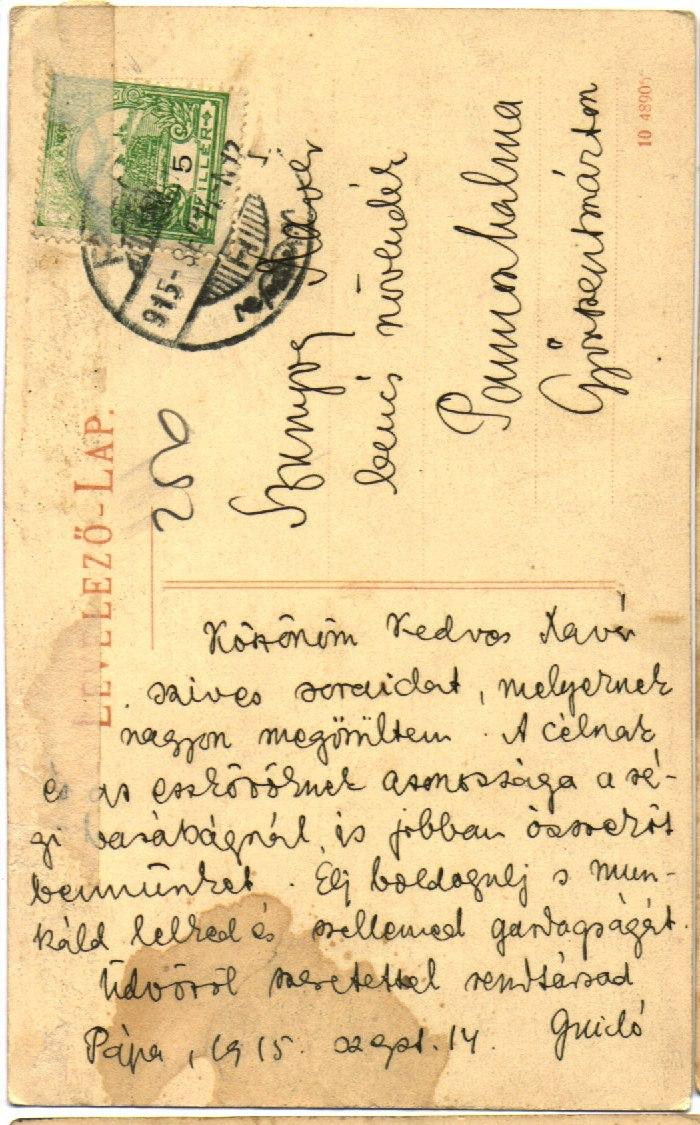 LEVELEZŐ-LAP.
5
FILLÉR
915
200
Szunyog Xavér
bencés növendék
Pannonhalma
Győrszentmárton
Köszönöm kedves Xavér
szives soraidat, melyeknek
nagyon megörültem. A célnak
és az eszközöknek azonossága a ré-
gi barátságnál is jobban összeköt
bennünket. Élj boldogulj s mun-
káld lelked és szellemed gazdagságát.
Üdvözöl szeretettel rendtársad
Guidó
Pápa, 1915. szept. 14.